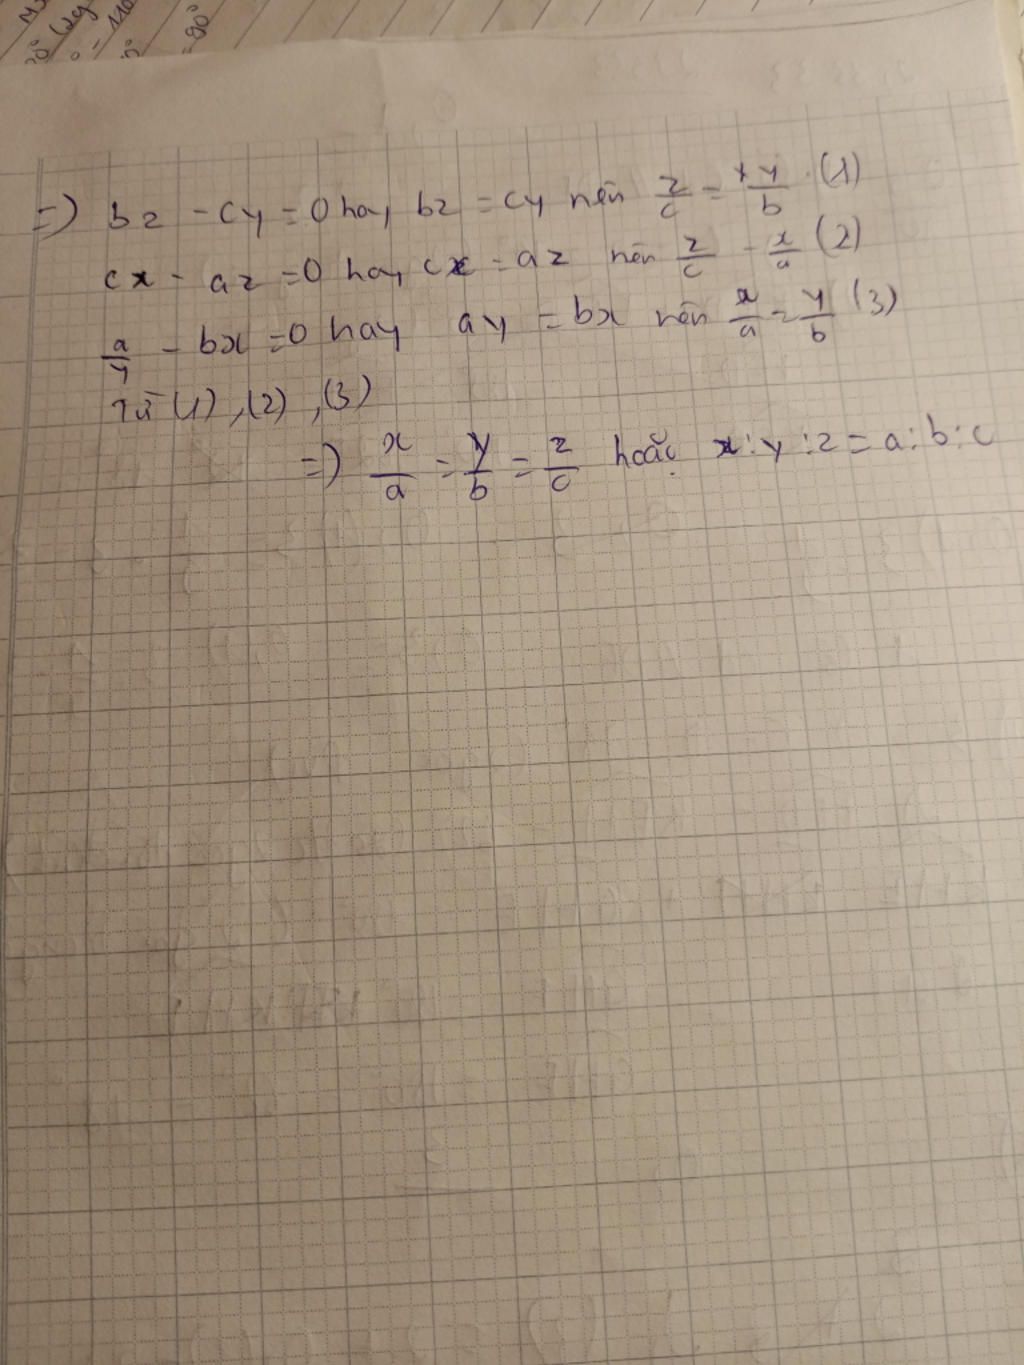 =) bz - cy = 0 hay bz = cy nên z/c = y/b (1)
cx - az = 0 hay cx = az nên z/c - x/a (2)
a/y - bx = 0 hay ay = bx nên x/a = y/b (3)
Từ (1), (2), (3)
=) x/a = y/b = z/c hoặc x : y : z = a : b : c